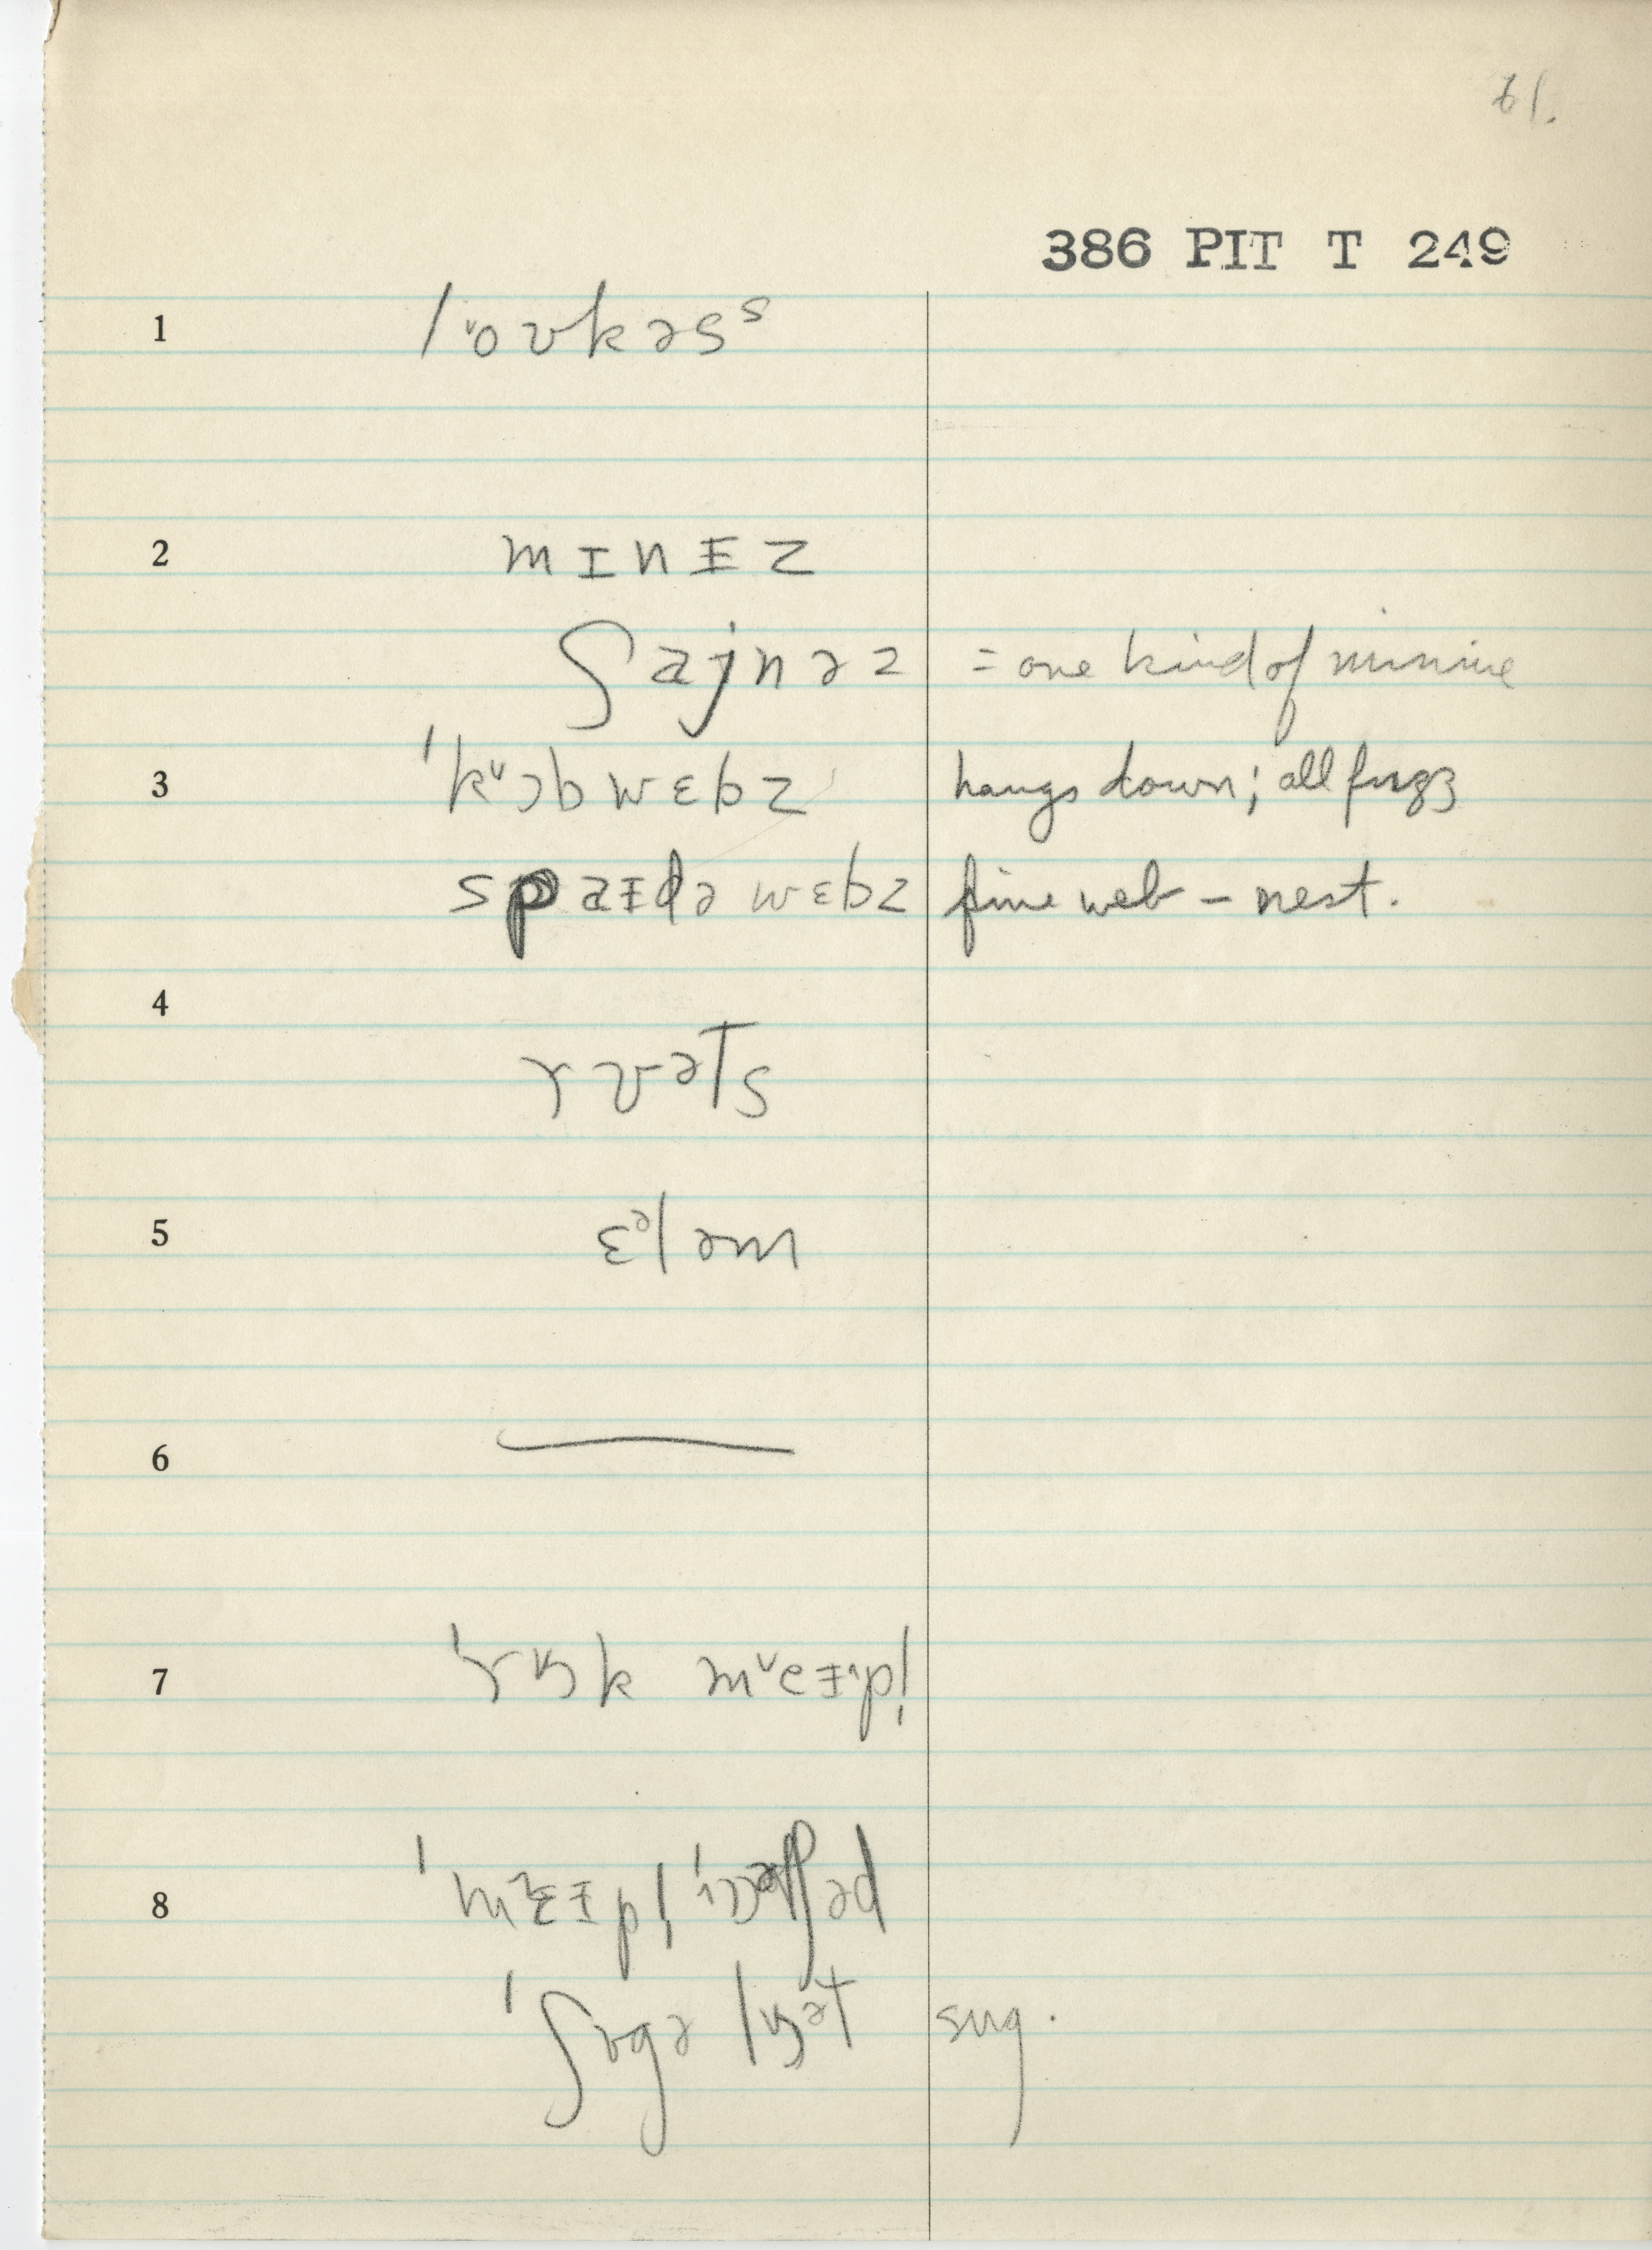 61.
386 PIT T 249
1 lo˅ʊkəsˢ
2 mɪnɪ̵z
ʃaɪ̯nəz = one kind of minnie
3 ˈk˅ɔbwɛbz hangs down; all fuzz
spaɪ̵də wɛbz fine web – nest.
4 rʊəts
5 ɛᵊləm
6
7 ˈrɒk m˅eɪ̵pl̩
8 ˈmɛɪ̵pl̩
ˈʃʊgə sug.